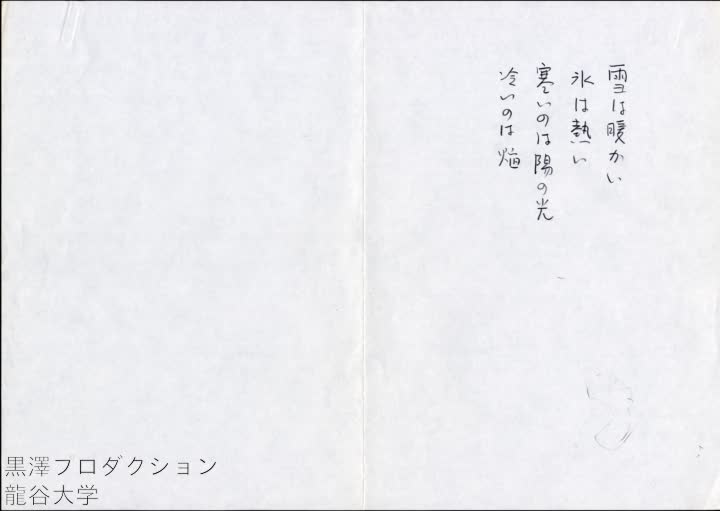 雪は暖かい
氷は熱い
寒いのは陽の光
冷いのは焔
黒澤プロダクション
龍谷大学